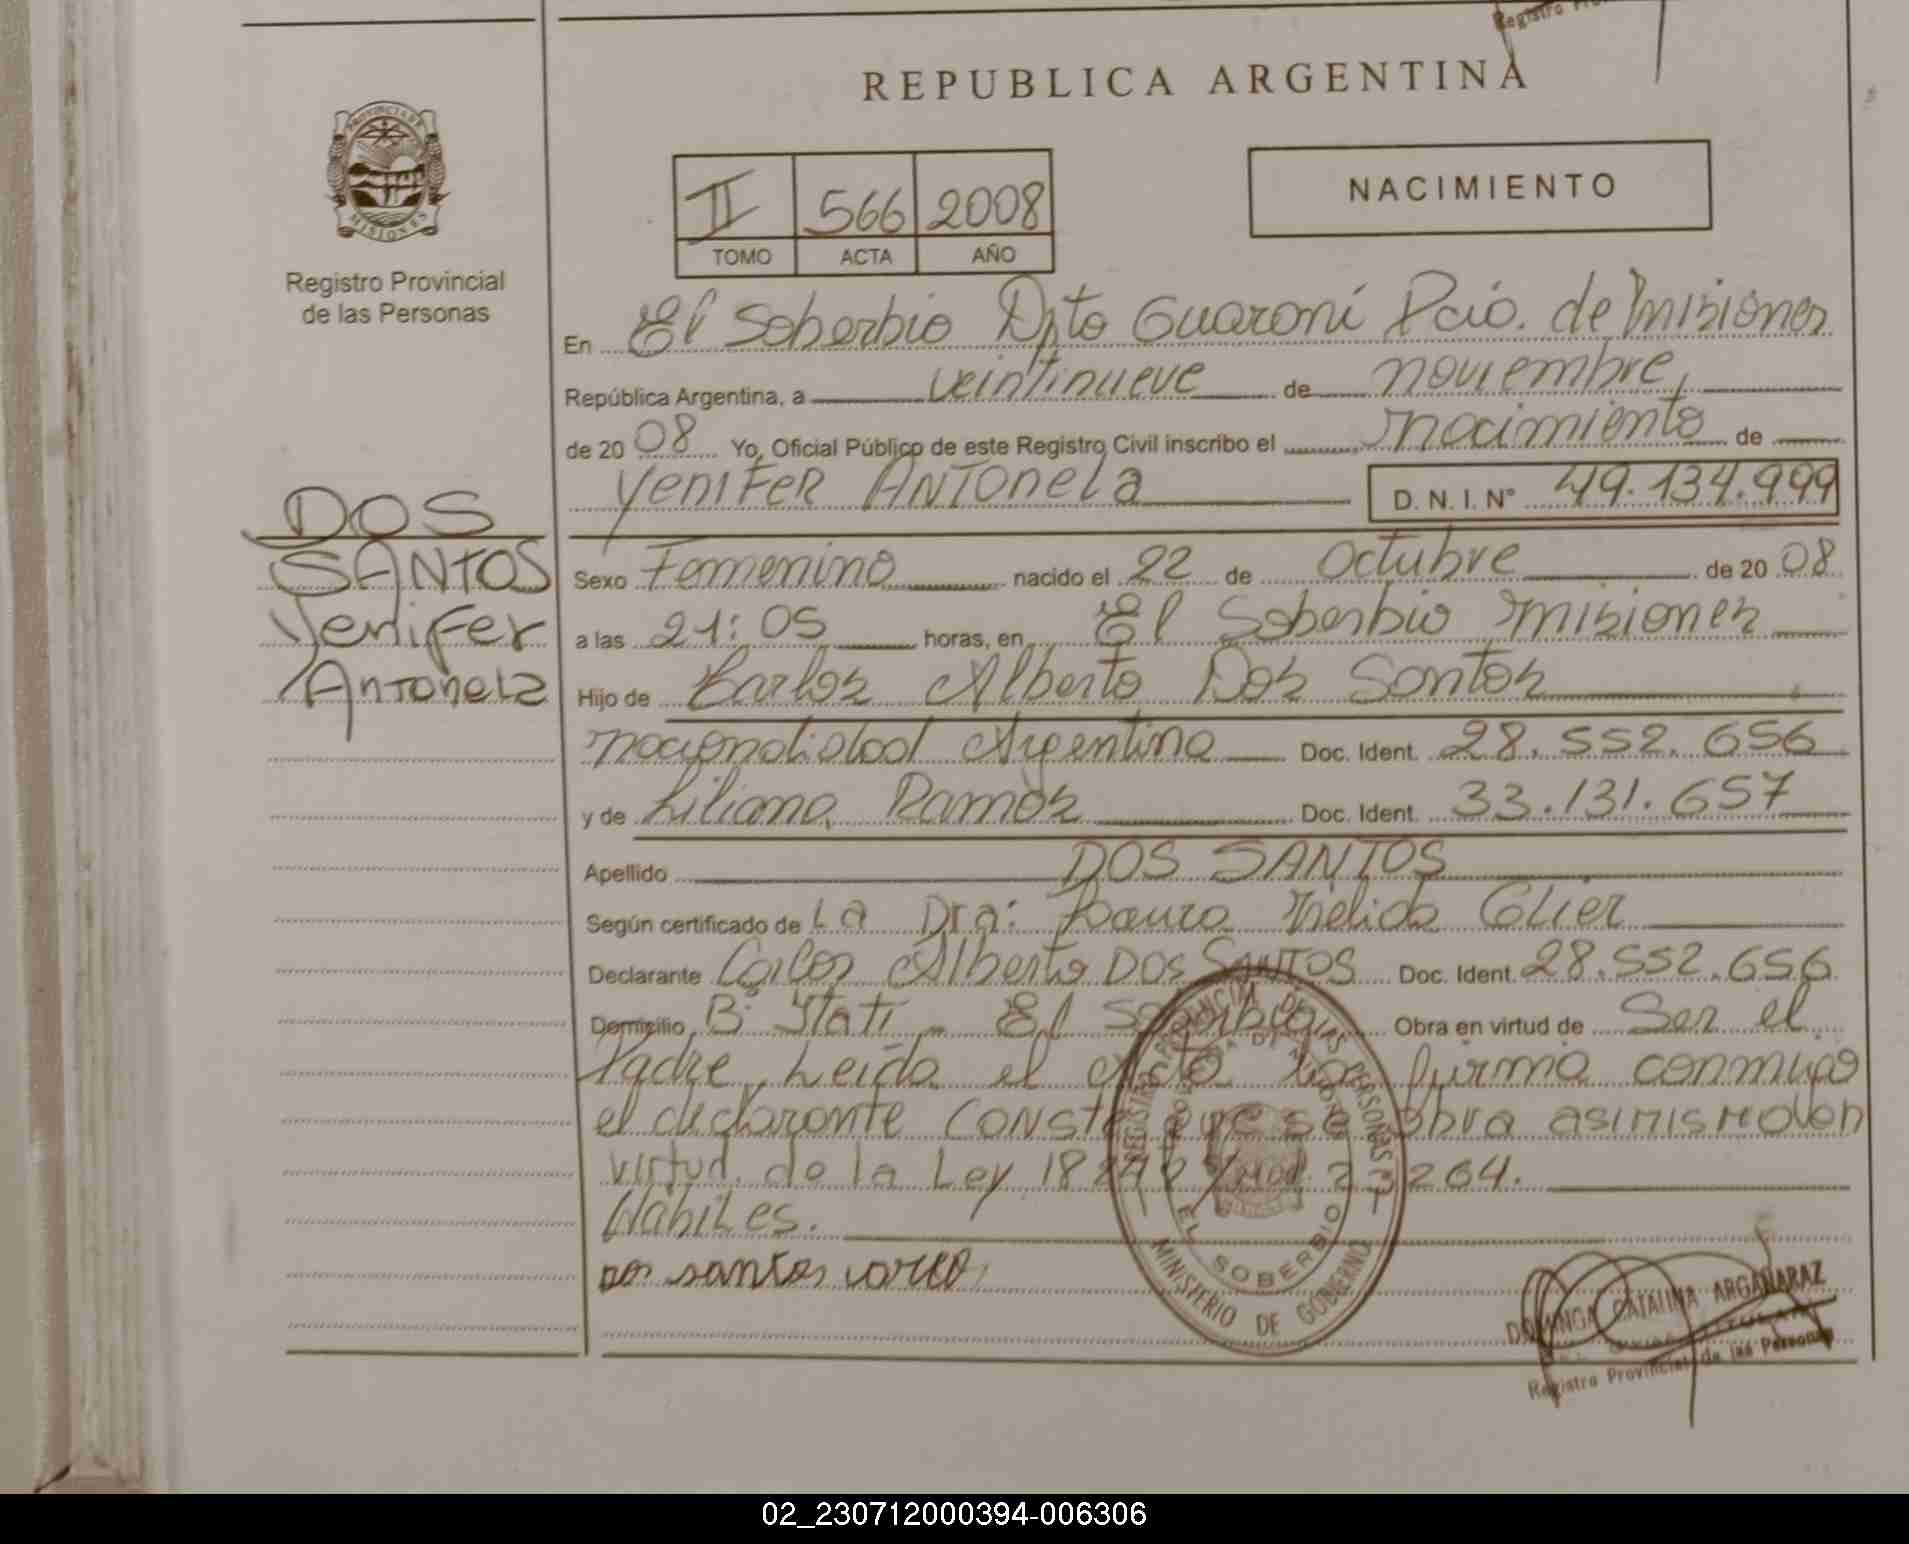 REPUBLICA ARGENTINA
PROVINCIA DE MISIONES
Registro Provincial
de las Personas
II 566 2008
TOMO ACTA AÑO
NACIMIENTO
En El Soberbio Dpto Guaraní Pcio. de Misiones
República Argentina, a veintinueve de noviembre,
de 2008 Yo, Oficial Público de este Registro Civil inscribo el nacimiento de
Yenifer Antonela D. N. I. N° 49.134.999
DOS
SANTOS
Yenifer
Antonela
Sexo Femenino nacido el 22 de Octubre de 2008
a las 21:05 horas, en El Soberbio Misiones
Hijo de Carlos Alberto Dos Santos
nacionalidad Argentina Doc. Ident. 28.552.656
y de Liliana Ramos Doc. Ident. 33.131.657
Apellido DOS SANTOS
Según certificado de La Dra: Nelida
Declarante Carlos Alberto DOS SANTOS Doc. Ident. 28.552.656
Domicilio B: Itati - El Soberbio Obra en virtud de Ser el
Padre, Leida el Acta la firma conmigo
el declarante Conste que se obra asimismo en
virtud de la Ley
Habiles.
Dos santos
REGISTRO PROVINCIAL DE LAS PERSONAS
EL SOBERBIO
MINISTERIO DE GOBIERNO
DOMINGA CATALINA ARGAÑARAZ
Registro Provincial de las Personas
02_230712000394-006306